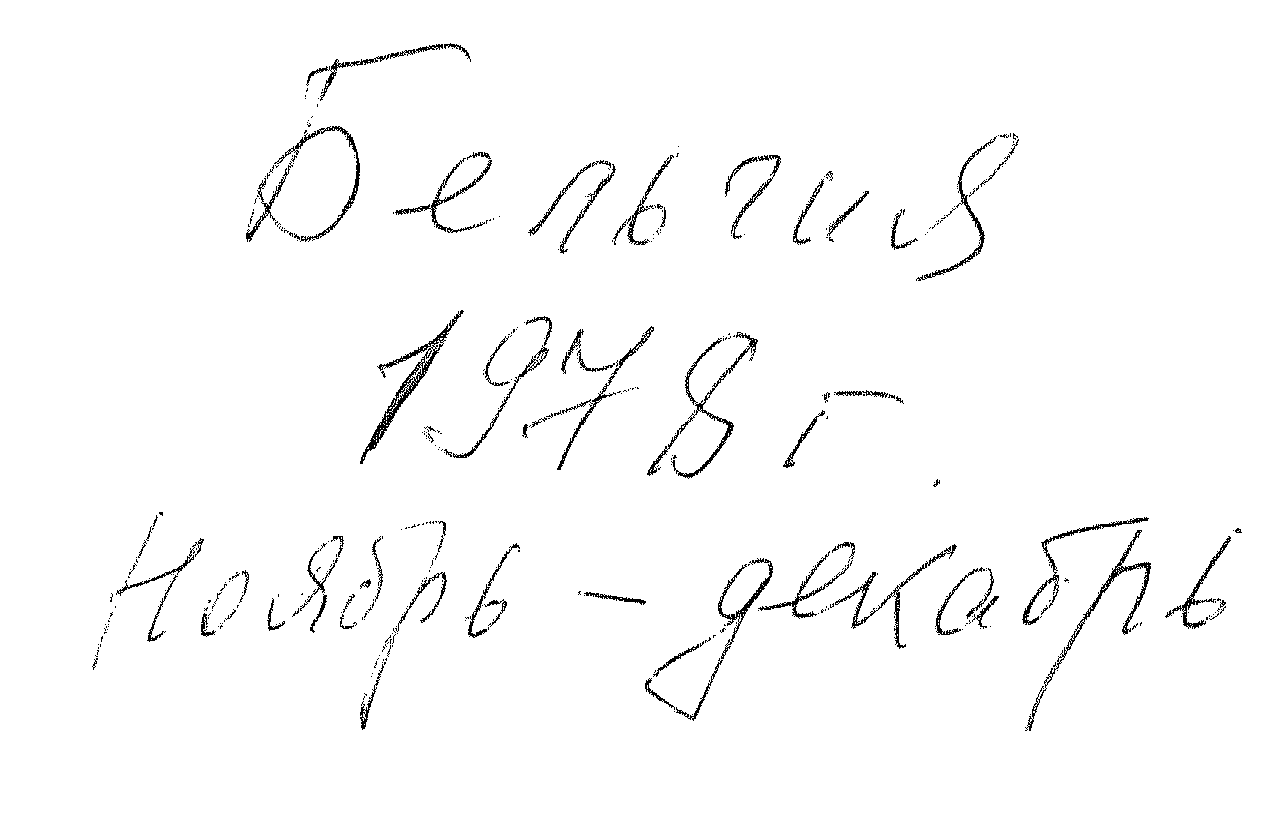 Бельгия
1978 г.
Ноябрь – декабрь